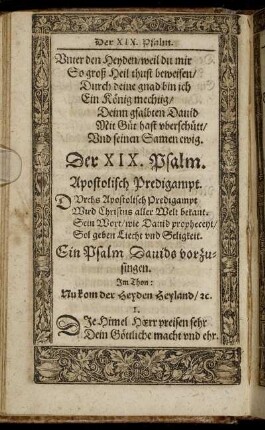 Der XIX. Psalm.
Vnter den Heyden/weil du mir
So groß Heil thust beweisen/
Durch deine gnad bin ich
Ein König mechtig/
Deinn gsalbten Dauid
Mit Güt hast vberschütt/
Vnd seinen Samen ewig.
Der XIX. Psalm.
Apostolisch Predigampt.
DVrchs Apostolisch Predigampt
Wird Christus aller Welt bekant.
Sein Wort/wie Dauid propheceyt/
Sol geben Liecht vnd Seligkeit.
Ein Psalm Dauids vorzu-
singen.
Im Thon:
Nu kom der Heyden Heyland/ ꝛc.
1.
DJe Himel HErr preisen sehr
Dein Göttliche macht vnd ehr.